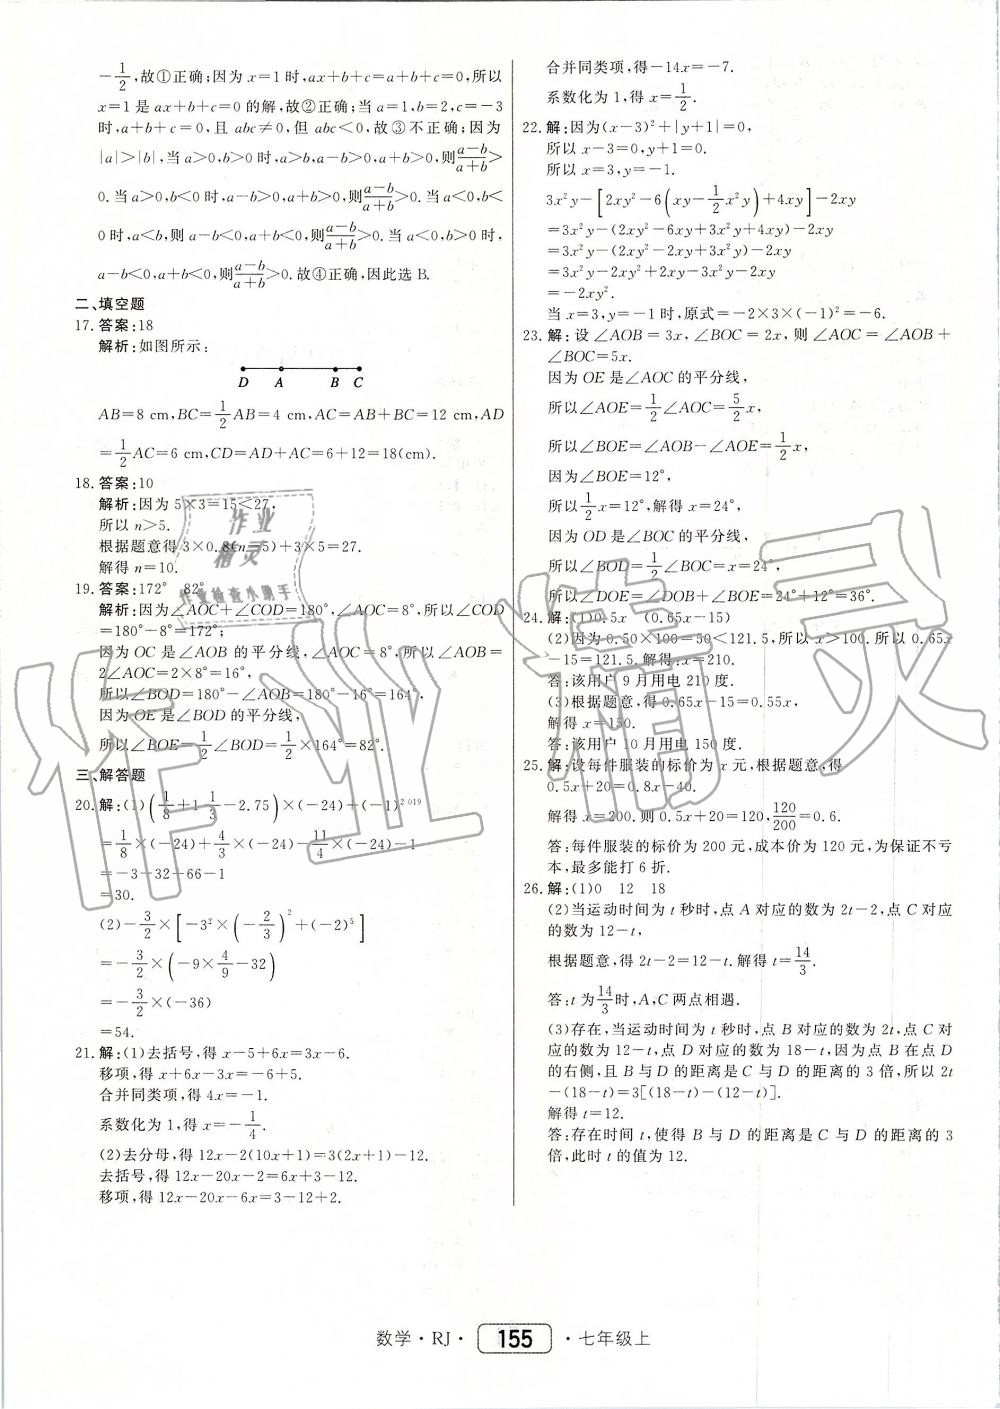 -1/2,故①正确;因为x=1时,ax+b+c=a+b+c=0,所以
x=1是ax+b+c=0的解,故②正确;当a=1,b=2,c=-3
时,a+b+c=0,且abc≠0,但abc<0,故③不正确;因为
|a|>|b|,当a>0,b>0时,a>b,a-b>0,a+b>0,则(a-b)/(a+b)>
0.当a>0,b<0时,a-b>0,a+b>0,则(a-b)/(a+b)>0.当a<0,b<
0时,a<b,则a-b<0,a+b<0,则(a-b)/(a+b)>0.当a<0,b>0时,
a-b<0,a+b<0,则(a-b)/(a+b)>0.故④正确,因此选B.
二、填空题
17.答案:18
解析:如图所示:
D A B C
AB=8 cm,BC=1/2AB=4 cm,AC=AB+BC=12 cm,AD
=1/2AC=6 cm,CD=AD+AC=6+12=18(cm).
18.答案:10
解析:因为5×3=15<27.
所以n>5.
根据题意得3×0.8(n-5)+3×5=27.
解得n=10.
19.答案:172° 82°
解析:因为∠AOC+∠COD=180°,∠AOC=8°,所以∠COD
=180°-8°=172°;
因为OC是∠AOB的平分线,∠AOC=8°,所以∠AOB=
2∠AOC=2×8°=16°,
所以∠BOD=180°-∠AOB=180°-16°=164°,
因为OE是∠BOD的平分线,
所以∠BOE=1/2∠BOD=1/2×164°=82°.
三、解答题
20.解:(1)(1/8+1 1/3-2.75)×(-24)+(-1)^2 019
=1/8×(-24)+4/3×(-24)-11/4×(-24)-1
=-3-32+66-1
=30.
(2)-3/2×[-3²×(-2/3)²+(-2)⁵]
=-3/2×(-9×4/9-32)
=-3/2×(-36)
=54.
21.解:(1)去括号,得x-5+6x=3x-6.
移项,得x+6x-3x=-6+5.
合并同类项,得4x=-1.
系数化为1,得x=-1/4.
(2)去分母,得12x-2(10x+1)=3(2x+1)-12.
去括号,得12x-20x-2=6x+3-12.
移项,得12x-20x-6x=3-12+2.
合并同类项,得-14x=-7.
系数化为1,得x=1/2.
22.解:因为(x-3)²+|y+1|=0,
所以x-3=0,y+1=0.
所以x=3,y=-1.
3x²y-[2xy²-6(xy-1/2x²y)+4xy]-2xy
=3x²y-(2xy²-6xy+3x²y+4xy)-2xy
=3x²y-(2xy²-2xy+3x²y)-2xy
=3x²y-2xy²+2xy-3x²y-2xy
=-2xy².
当x=3,y=-1时,原式=-2×3×(-1)²=-6.
23.解:设∠AOB=3x,∠BOC=2x,则∠AOC=∠AOB+
∠BOC=5x.
因为OE是∠AOC的平分线,
所以∠AOE=1/2∠AOC=5/2x,
所以∠BOE=∠AOB-∠AOE=1/2x,
因为∠BOE=12°,
所以1/2x=12°,解得x=24°,
因为OD是∠BOC的平分线,
所以∠BOD=1/2∠BOC=x=24°,
所以∠DOE=∠DOB+∠BOE=24°+12°=36°.
24.解:(1)0.5x (0.65x-15)
(2)因为0.50×100=50<121.5,所以x>100.所以0.65x
-15=121.5.解得:x=210.
答:该用户9月用电210度.
(3)根据题意,得0.65x-15=0.55x,
解得x=150.
答:该用户10月用电150度.
25.解:设每件服装的标价为x元,根据题意,得
0.5x+20=0.8x-40.
解得x=200.则0.5x+20=120,120/200=0.6.
答:每件服装的标价为200元,成本价为120元,为保证不亏
本,最多能打6折.
26.解:(1)0 12 18
(2)当运动时间为t秒时,点A对应的数为2t-2,点C对应
的数为12-t,
根据题意,得2t-2=12-t.解得t=14/3.
答:t为14/3时,A,C两点相遇.
(3)存在,当运动时间为t秒时,点B对应的数为2t,点C对
应的数为12-t,点D对应的数为18-t,因为点B在点D
的右侧,且B与D的距离是C与D的距离的3倍,所以2t
-(18-t)=3[(18-t)-(12-t)].
解得t=12.
答:存在时间t,使得B与D的距离是C与D的距离的3
倍,此时t的值为12.
数学·RJ· 155 ·七年级上
作业精灵
作业精灵
作业检查小助手